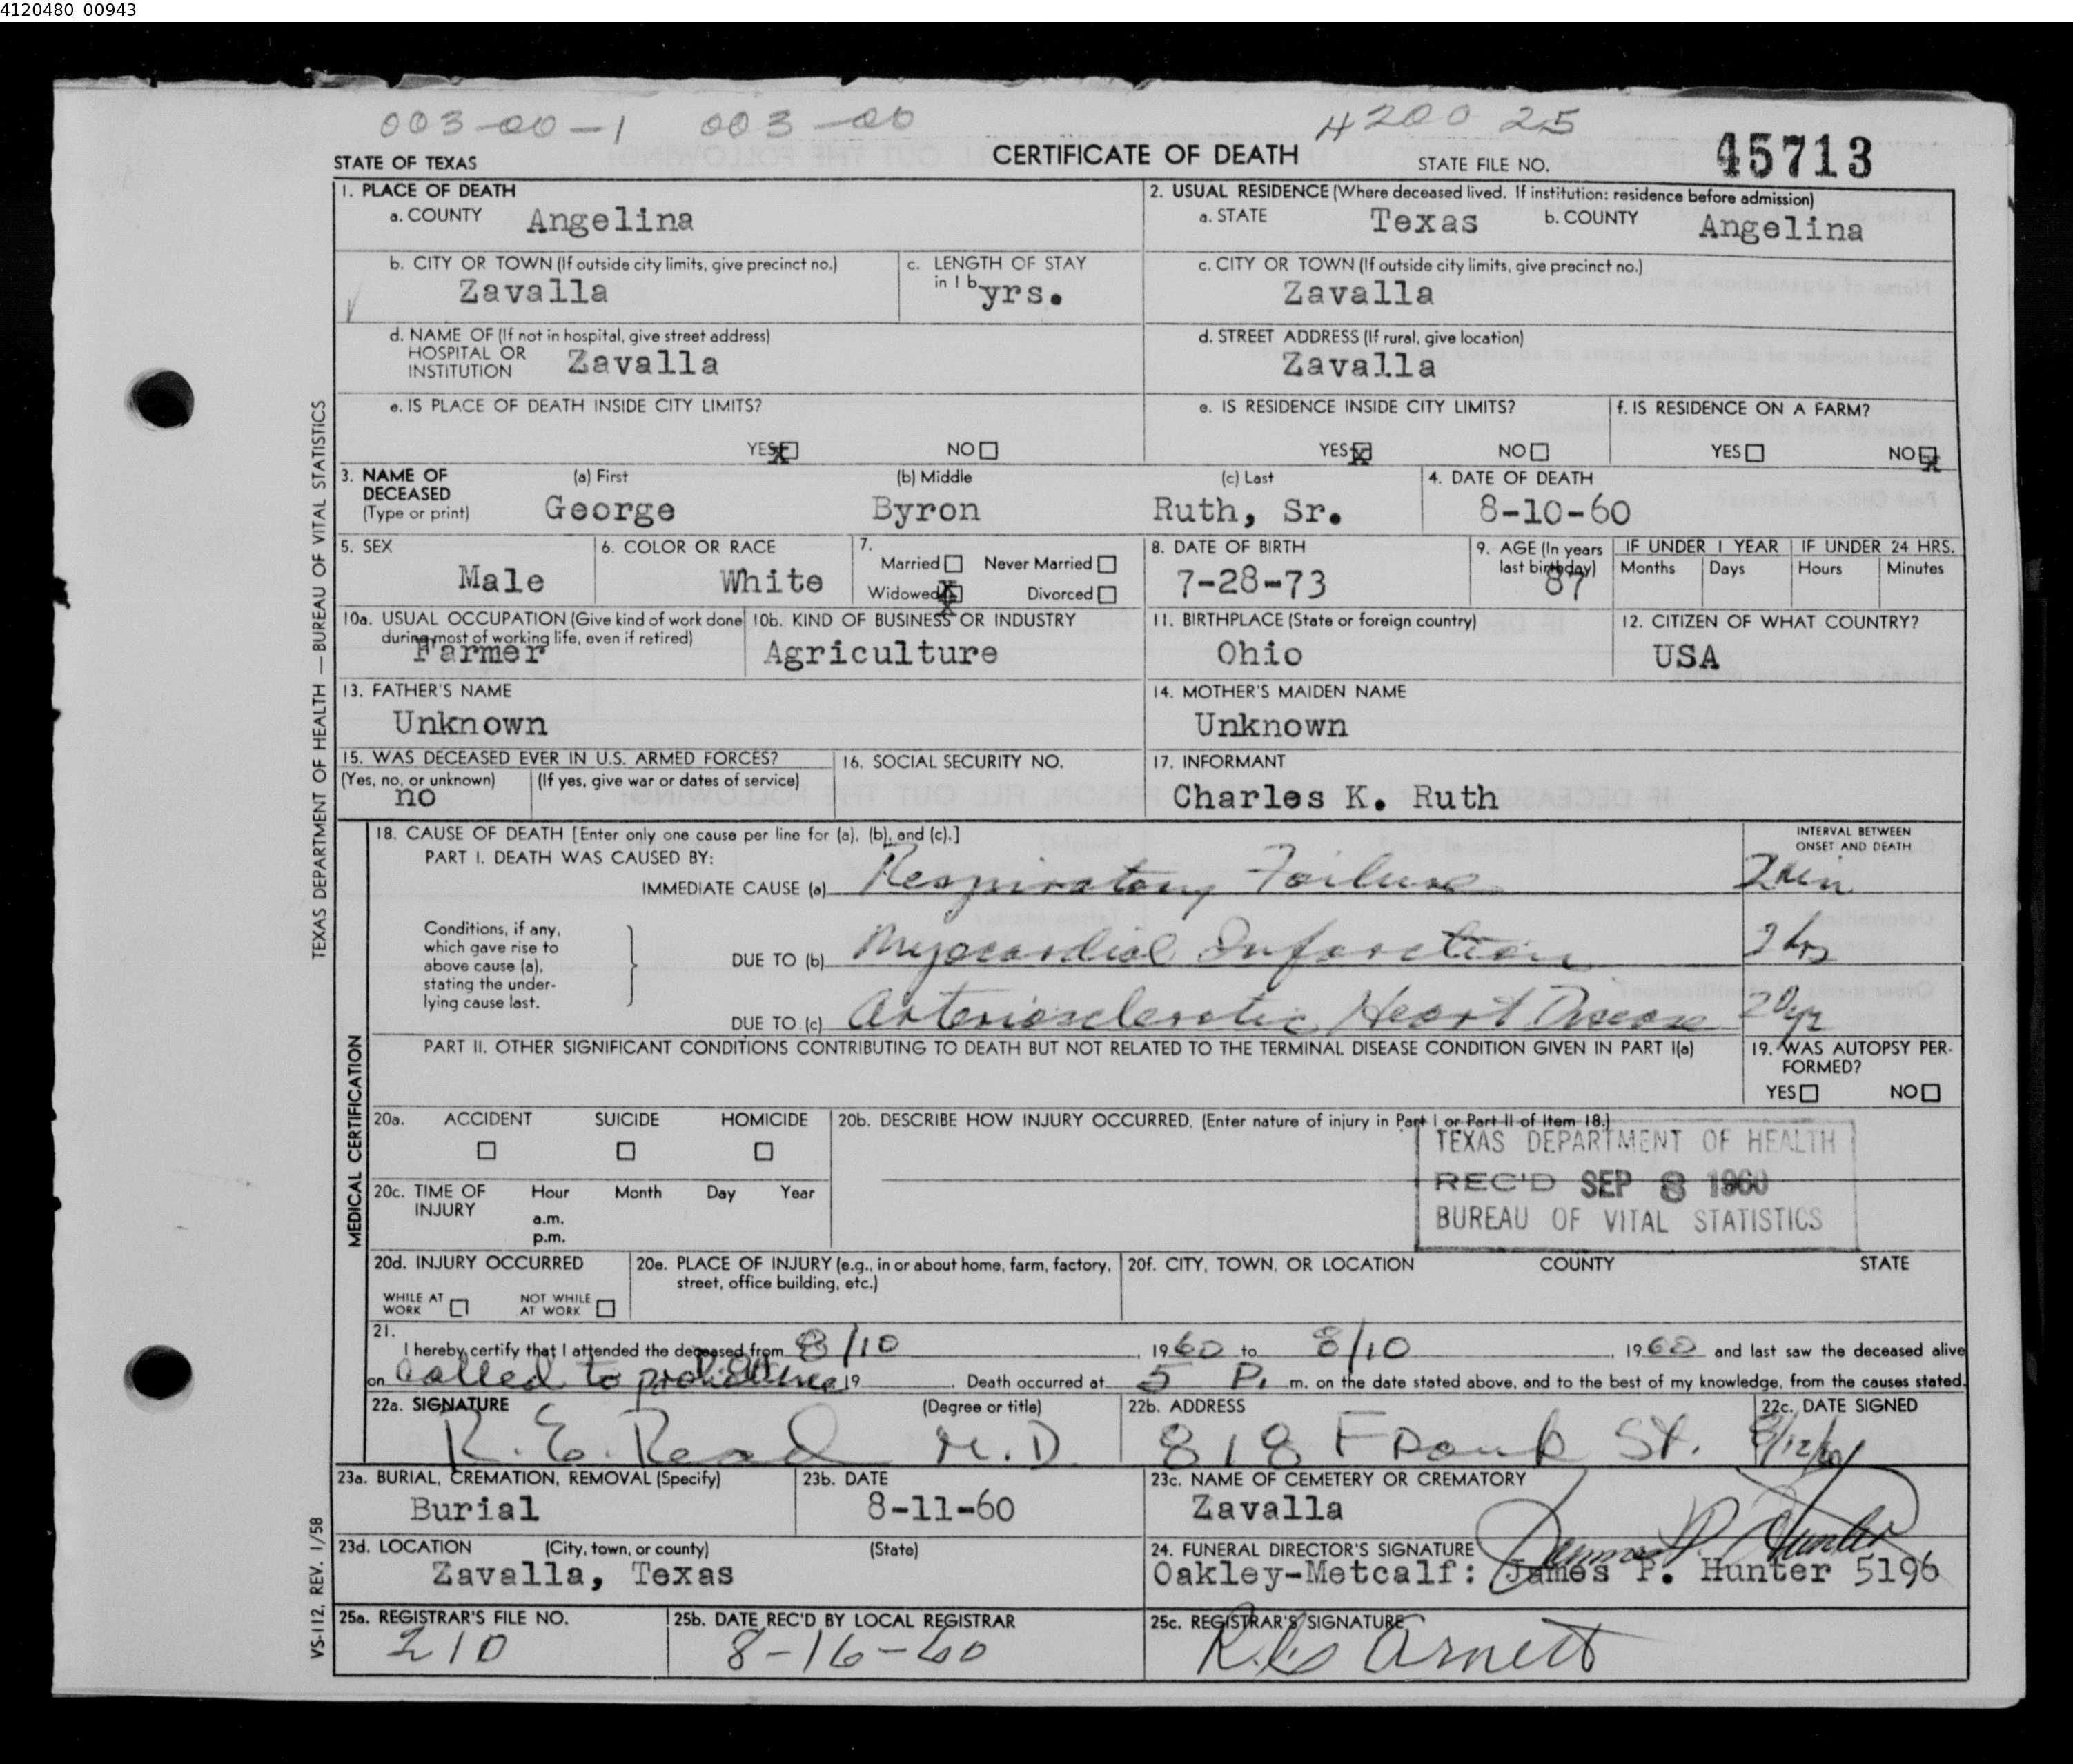 4120480_00943
003-00-1 003-00 4200 25
STATE OF TEXAS CERTIFICATE OF DEATH STATE FILE NO. 45713
1. PLACE OF DEATH
a. COUNTY Angelina
2. USUAL RESIDENCE (Where deceased lived. If institution: residence before admission)
a. STATE Texas b. COUNTY Angelina
b. CITY OR TOWN (If outside city limits, give precinct no.)
Zavalla
c. LENGTH OF STAY
in 1 b yrs.
c. CITY OR TOWN (If outside city limits, give precinct no.)
Zavalla
d. NAME OF (If not in hospital, give street address)
HOSPITAL OR
INSTITUTION Zavalla
d. STREET ADDRESS (If rural, give location)
Zavalla
e. IS PLACE OF DEATH INSIDE CITY LIMITS?
YES X NO
e. IS RESIDENCE INSIDE CITY LIMITS?
YES X NO
f. IS RESIDENCE ON A FARM?
YES NO X
3. NAME OF
DECEASED
(Type or print)
(a) First (b) Middle (c) Last
George Byron Ruth, Sr.
4. DATE OF DEATH
8-10-60
5. SEX
Male
6. COLOR OR RACE
White
7.
Married Never Married
Widowed X Divorced
8. DATE OF BIRTH
7-28-73
9. AGE (In years
last birthday)
87
IF UNDER 1 YEAR IF UNDER 24 HRS.
Months Days Hours Minutes
10a. USUAL OCCUPATION (Give kind of work done
during most of working life, even if retired)
Farmer
10b. KIND OF BUSINESS OR INDUSTRY
Agriculture
11. BIRTHPLACE (State or foreign country)
Ohio
12. CITIZEN OF WHAT COUNTRY?
USA
13. FATHER'S NAME
Unknown
14. MOTHER'S MAIDEN NAME
Unknown
15. WAS DECEASED EVER IN U.S. ARMED FORCES?
(Yes, no, or unknown) (If yes, give war or dates of service)
no
16. SOCIAL SECURITY NO.
17. INFORMANT
Charles K. Ruth
18. CAUSE OF DEATH [Enter only one cause per line for (a), (b), and (c).]
PART I. DEATH WAS CAUSED BY:
INTERVAL BETWEEN
ONSET AND DEATH
IMMEDIATE CAUSE (a) Respiratory Failure 2 min
Conditions, if any,
which gave rise to
above cause (a),
stating the under-
lying cause last.
DUE TO (b) Myocardial Infarction 2 hrs
DUE TO (c) Arteriosclerotic Heart Disease 20 yr
PART II. OTHER SIGNIFICANT CONDITIONS CONTRIBUTING TO DEATH BUT NOT RELATED TO THE TERMINAL DISEASE CONDITION GIVEN IN PART I(a)
19. WAS AUTOPSY PER-
FORMED?
YES NO
20a. ACCIDENT SUICIDE HOMICIDE
20b. DESCRIBE HOW INJURY OCCURRED. (Enter nature of injury in Part I or Part II of Item 18.)
TEXAS DEPARTMENT OF HEALTH
REC'D SEP 8 1960
BUREAU OF VITAL STATISTICS
20c. TIME OF
INJURY
Hour Month Day Year
a.m.
p.m.
20d. INJURY OCCURRED
WHILE AT
WORK
NOT WHILE
AT WORK
20e. PLACE OF INJURY (e.g., in or about home, farm, factory,
street, office building, etc.)
20f. CITY, TOWN, OR LOCATION COUNTY STATE
21.
I hereby certify that I attended the deceased from 8/10, 1960 to 8/10, 1960 and last saw the deceased alive
on called to 19 . Death occurred at 5 P. m. on the date stated above, and to the best of my knowledge, from the causes stated.
22a. SIGNATURE (Degree or title)
R. E. Read M.D.
22b. ADDRESS
818 Frank St.
22c. DATE SIGNED
8/12/60
23a. BURIAL, CREMATION, REMOVAL (Specify)
Burial
23b. DATE
8-11-60
23c. NAME OF CEMETERY OR CREMATORY
Zavalla
23d. LOCATION (City, town, or county) (State)
Zavalla, Texas
24. FUNERAL DIRECTOR'S SIGNATURE James P. Hunter
Oakley-Metcalf: James P. Hunter 5196
25a. REGISTRAR'S FILE NO.
210
25b. DATE REC'D BY LOCAL REGISTRAR
8-16-60
25c. REGISTRAR'S SIGNATURE
Arnett
TEXAS DEPARTMENT OF HEALTH — BUREAU OF VITAL STATISTICS
MEDICAL CERTIFICATION
VS-112, REV. 1/58